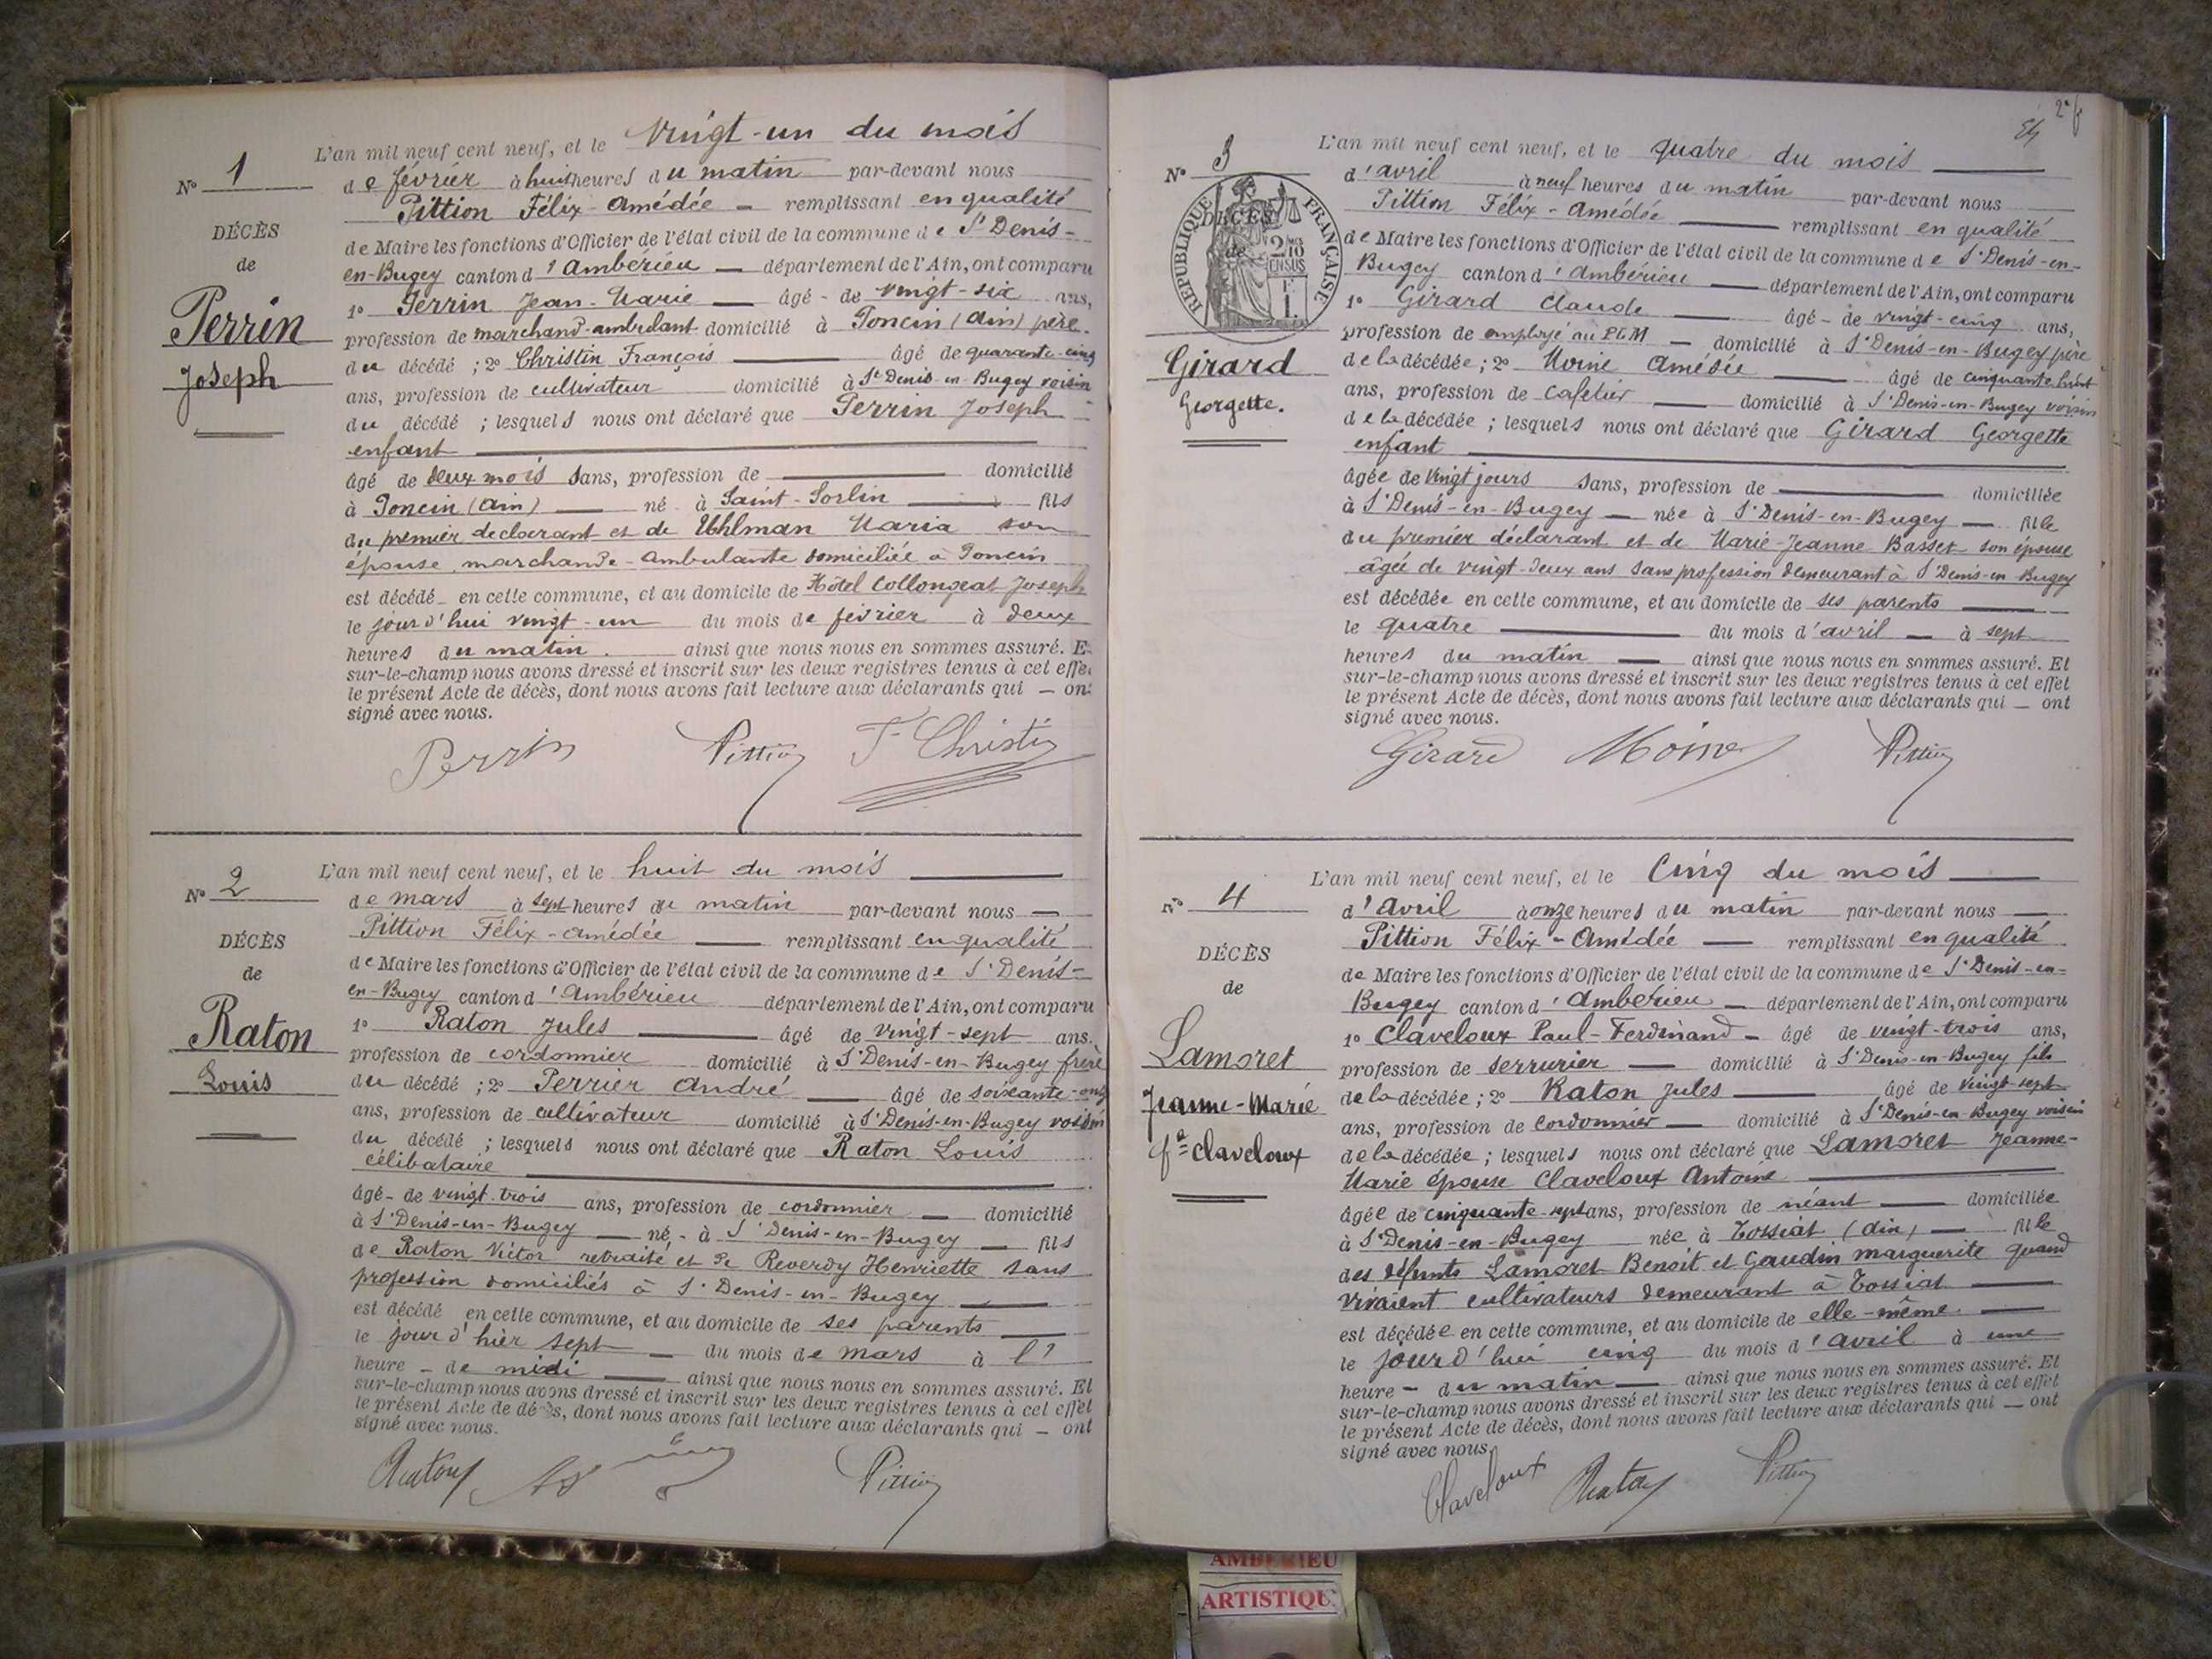 L'an mil neuf cent neuf, et le vingt-un du mois
N° 1
de février à huit heures du matin par-devant nous
Pittion Félix-Amédée remplissant en qualité
DÉCÈS
de Maire les fonctions d'Officier de l'état civil de la commune de St Denis-
de
en-Bugey canton d'Ambérieu département de l'Ain, ont comparu
Perrin
1° Perrin Jean-Marie âgé de vingt-six ans,
profession de marchand-ambulant domicilié à Poncin (Ain) père
Joseph
du décédé ; 2° Christin François âgé de quarante-cinq
ans, profession de cultivateur domicilié à St Denis-en-Bugey voisin
du décédé ; lesquels nous ont déclaré que Perrin Joseph
enfant
âgé de deux mois sans, profession de domicilié
à Poncin (Ain) né à Saint-Sorlin fils
du premier déclarant et de Uhlman Maria son
épouse, marchande-ambulante domiciliée à Poncin
est décédé en cette commune, et au domicile de Hôtel Collongeat Joseph
le jourd'hui vingt-un du mois de février à deux
heures du matin. ainsi que nous nous en sommes assuré. E
sur-le-champ nous avons dressé et inscrit sur les deux registres tenus à cet effe
le présent Acte de décès, dont nous avons fait lecture aux déclarants qui ont
signé avec nous.
Perrin Pittion F Christin
L'an mil neuf cent neuf, et le huit du mois
N° 2
de mars à sept heures du matin par-devant nous
Pittion Félix-Amédée remplissant en qualité
DÉCÈS
de Maire les fonctions d'Officier de l'état civil de la commune de St Denis-
de
en-Bugey canton d'Ambérieu département de l'Ain, ont comparu
Raton
1° Raton Jules âgé de vingt-sept ans.
profession de cordonnier domicilié à St Denis-en-Bugey frère
Louis
du décédé ; 2° Perrier André âgé de soixante-onze
ans, profession de cultivateur domicilié à St Denis-en-Bugey voisin
du décédé ; lesquels nous ont déclaré que Raton Louis
célibataire
âgé de vingt-trois ans, profession de cordonnier domicilié
à St Denis-en-Bugey né à St Denis-en-Bugey fils
de Raton Victor retraité et de Reverdy Henriette sans
profession domiciliés à St Denis-en-Bugey
est décédé en cette commune, et au domicile de ses parents
le jour d'hier sept du mois de mars à l'
heure de midi ainsi que nous nous en sommes assuré. Et
sur-le-champ nous avons dressé et inscrit sur les deux registres tenus à cet effet
le présent Acte de décès, dont nous avons fait lecture aux déclarants qui ont
signé avec nous.
Raton Pittion
2e f
L'an mil neuf cent neuf, et le quatre du mois
N° 3
d'avril à neuf heures du matin par-devant nous
Pittion Félix-Amédée remplissant en qualité
RÉPUBLIQUE FRANÇAISE
DÉCÈS
de
de Maire les fonctions d'Officier de l'état civil de la commune de St Denis-en-
Bugey canton d'Ambérieu département de l'Ain, ont comparu
1° Girard Claude âgé de vingt-cinq ans,
profession de employé au PLM domicilié à St Denis-en-Bugey père
Girard
de la décédée ; 2° Moine Amédée âgé de cinquante-huit
Georgette.
ans, profession de cafetier domicilié à St Denis-en-Bugey voisin
de la décédée ; lesquels nous ont déclaré que Girard Georgette
enfant
âgée de vingt jours sans, profession de domiciliée
à St Denis-en-Bugey née à St Denis-en-Bugey fille
du premier déclarant et de Marie-Jeanne Basset son épouse
âgée de vingt-deux ans sans profession demeurant à St Denis-en-Bugey
est décédée en cette commune, et au domicile de ses parents
le quatre du mois d'avril à sept
heures du matin ainsi que nous nous en sommes assuré. Et
sur-le-champ nous avons dressé et inscrit sur les deux registres tenus à cet effet
le présent Acte de décès, dont nous avons fait lecture aux déclarants qui ont
signé avec nous.
Girard Moine Pittion
L'an mil neuf cent neuf, et le Cinq du mois
N° 4
d'avril à onze heures du matin par-devant nous
Pittion Félix-Amédée remplissant en qualité
DÉCÈS
de Maire les fonctions d'Officier de l'état civil de la commune de St Denis-en-
de
Bugey canton d'Ambérieu département de l'Ain, ont comparu
1° Claveloux Paul-Ferdinand âgé de vingt-trois ans,
Lamoret
profession de serrurier domicilié à St Denis-en-Bugey fils
Jeanne-Marie
de la décédée ; 2° Raton Jules âgé de vingt-sept
ans, profession de cordonnier domicilié à St Denis-en-Bugey voisin
fe Claveloux
de la décédée ; lesquels nous ont déclaré que Lamoret Jeanne-
Marie épouse Claveloux Antoine
âgée de cinquante-sept ans, profession de néant domiciliée
à St Denis-en-Bugey née à Tossiat (Ain) fille
des défunts Lamoret Benoit et Gaudin Marguerite quand
vivaient cultivateurs demeurant à Tossiat
est décédée en cette commune, et au domicile de elle-même
le jourd'hui cinq du mois d'avril à une
heure du matin ainsi que nous nous en sommes assuré. Et
sur-le-champ nous avons dressé et inscrit sur les deux registres tenus à cet effet
le présent Acte de décès, dont nous avons fait lecture aux déclarants qui ont
signé avec nous.
Claveloux Raton Pittion
AMBERIEU
ARTISTIQU